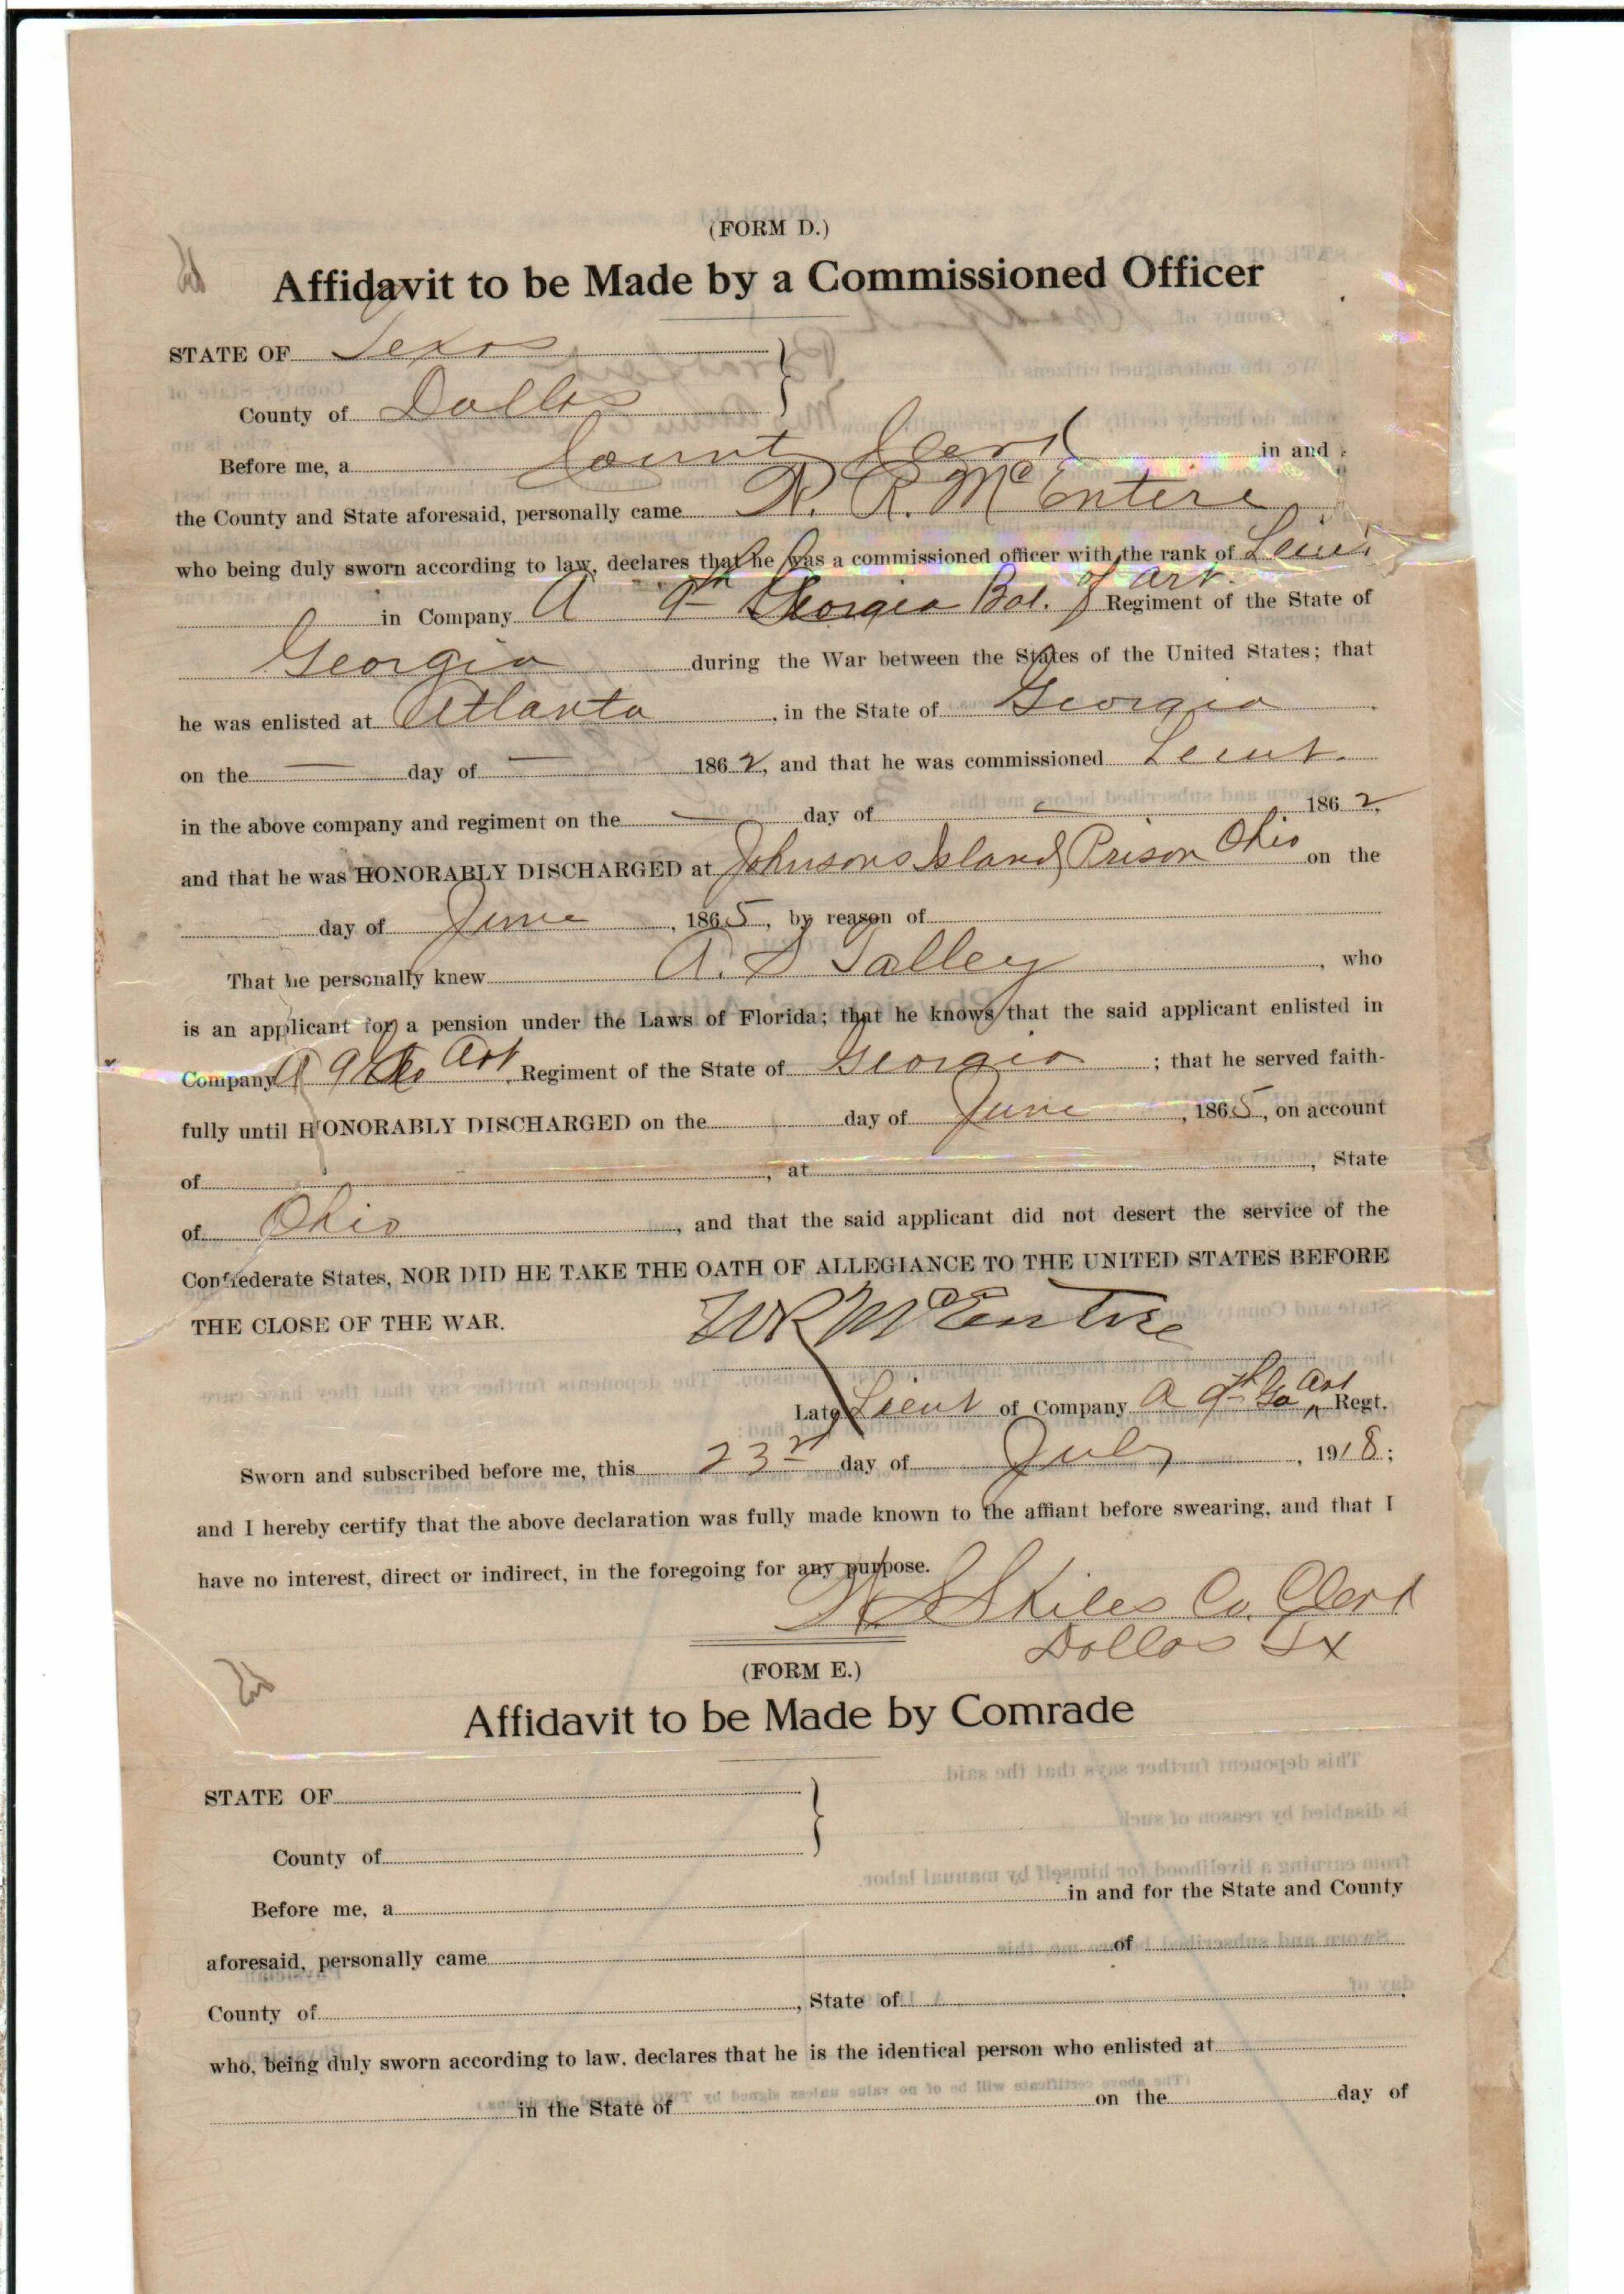 (FORM D.)
Affidavit to be Made by a Commissioned Officer
STATE OF Texas
County of Dallas
Before me, a County Clerk in and
the County and State aforesaid, personally came W. R. McEntere
who being duly sworn according to law, declares that he was a commissioned officer with the rank of Leiut
in Company A 9th Georgia Bat. of Art. Regiment of the State of
Georgia during the War between the States of the United States; that
he was enlisted at Atlanta, in the State of Georgia
on the — day of — 1862, and that he was commissioned Leiut.
in the above company and regiment on the — day of — 1862,
and that he was HONORABLY DISCHARGED at Johnsons Island Prison Ohio on the
day of June, 1865, by reason of
That he personally knew A. S Talley, who
is an applicant for a pension under the Laws of Florida; that he knows that the said applicant enlisted in
Company A 9 Ga Art. Regiment of the State of Georgia; that he served faith-
fully until HONORABLY DISCHARGED on the day of June, 1865, on account
of , at , State
of Ohio, and that the said applicant did not desert the service of the
Confederate States, NOR DID HE TAKE THE OATH OF ALLEGIANCE TO THE UNITED STATES BEFORE
THE CLOSE OF THE WAR.
WR McEntire
Late Lieut of Company A 9th Ga Art Regt.
Sworn and subscribed before me, this 23rd day of July, 1918;
and I hereby certify that the above declaration was fully made known to the affiant before swearing, and that I
have no interest, direct or indirect, in the foregoing for any purpose.
Skiles Co. Clerk
Dallas Tx
(FORM E.)
Affidavit to be Made by Comrade
STATE OF
County of
Before me, a in and for the State and County
aforesaid, personally came of
County of , State of
who, being duly sworn according to law, declares that he is the identical person who enlisted at
in the State of on the day of